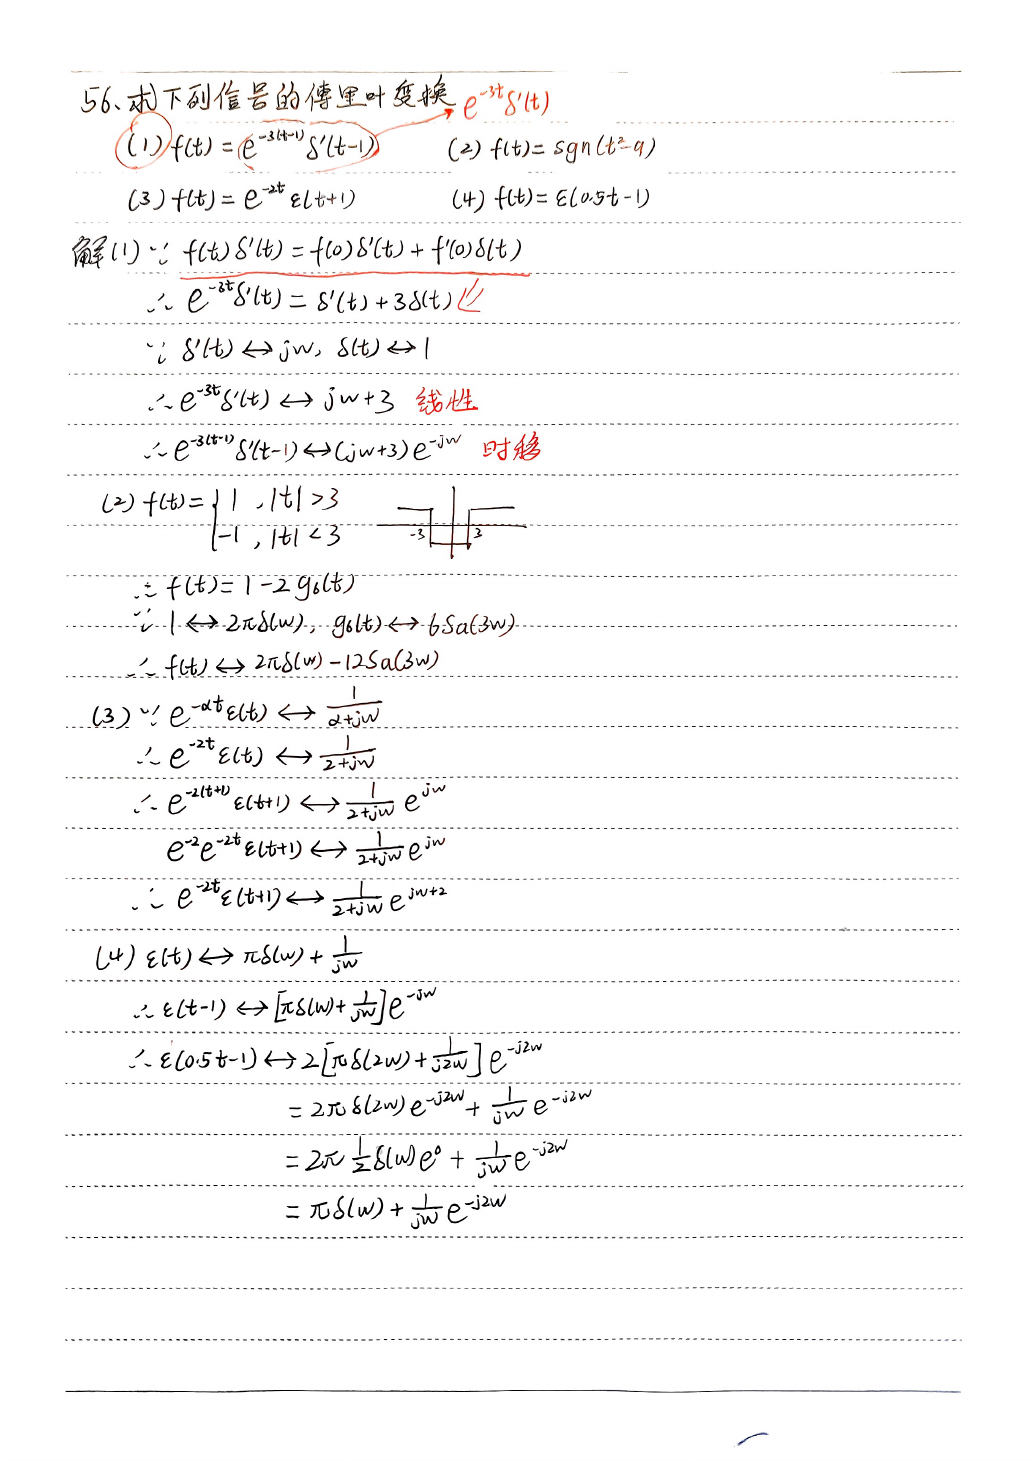 56、求下列信号的傅里叶变换 e^{-3t}δ'(t)
(1) f(t) = e^{-3(t-1)} δ'(t-1) (2) f(t) = sgn(t²-9)
(3) f(t) = e^{-2t} ε(t+1) (4) f(t) = ε(0.5t-1)
解(1) ∵ f(t)δ'(t) = f(0)δ'(t) + f'(0)δ(t)
∴ e^{-3t}δ'(t) = δ'(t) + 3δ(t)
∵ δ'(t) ↔ jw, δ(t) ↔ 1
∴ e^{-3t}δ'(t) ↔ jw+3 线性
∴ e^{-3(t-1)}δ'(t-1) ↔ (jw+3)e^{-jw} 时移
(2) f(t) = { 1 , |t| > 3
-1 , |t| < 3
-3 3
∴ f(t) = 1 - 2g₆(t)
∵ 1 ↔ 2πδ(w), g₆(t) ↔ 6Sa(3w)
∴ f(t) ↔ 2πδ(w) - 12Sa(3w)
(3) ∵ e^{-αt}ε(t) ↔ \frac{1}{α+jw}
∴ e^{-2t}ε(t) ↔ \frac{1}{2+jw}
∴ e^{-2(t+1)}ε(t+1) ↔ \frac{1}{2+jw} e^{jw}
e^{-2}e^{-2t}ε(t+1) ↔ \frac{1}{2+jw} e^{jw}
∴ e^{-2t}ε(t+1) ↔ \frac{1}{2+jw} e^{jw+2}
(4) ε(t) ↔ πδ(w) + \frac{1}{jw}
∴ ε(t-1) ↔ [πδ(w) + \frac{1}{jw}]e^{-jw}
∴ ε(0.5t-1) ↔ 2[πδ(2w) + \frac{1}{j2w}] e^{-j2w}
= 2πδ(2w)e^{-j2w} + \frac{1}{jw} e^{-j2w}
= 2π \frac{1}{2} δ(w)e⁰ + \frac{1}{jw} e^{-j2w}
= πδ(w) + \frac{1}{jw} e^{-j2w}